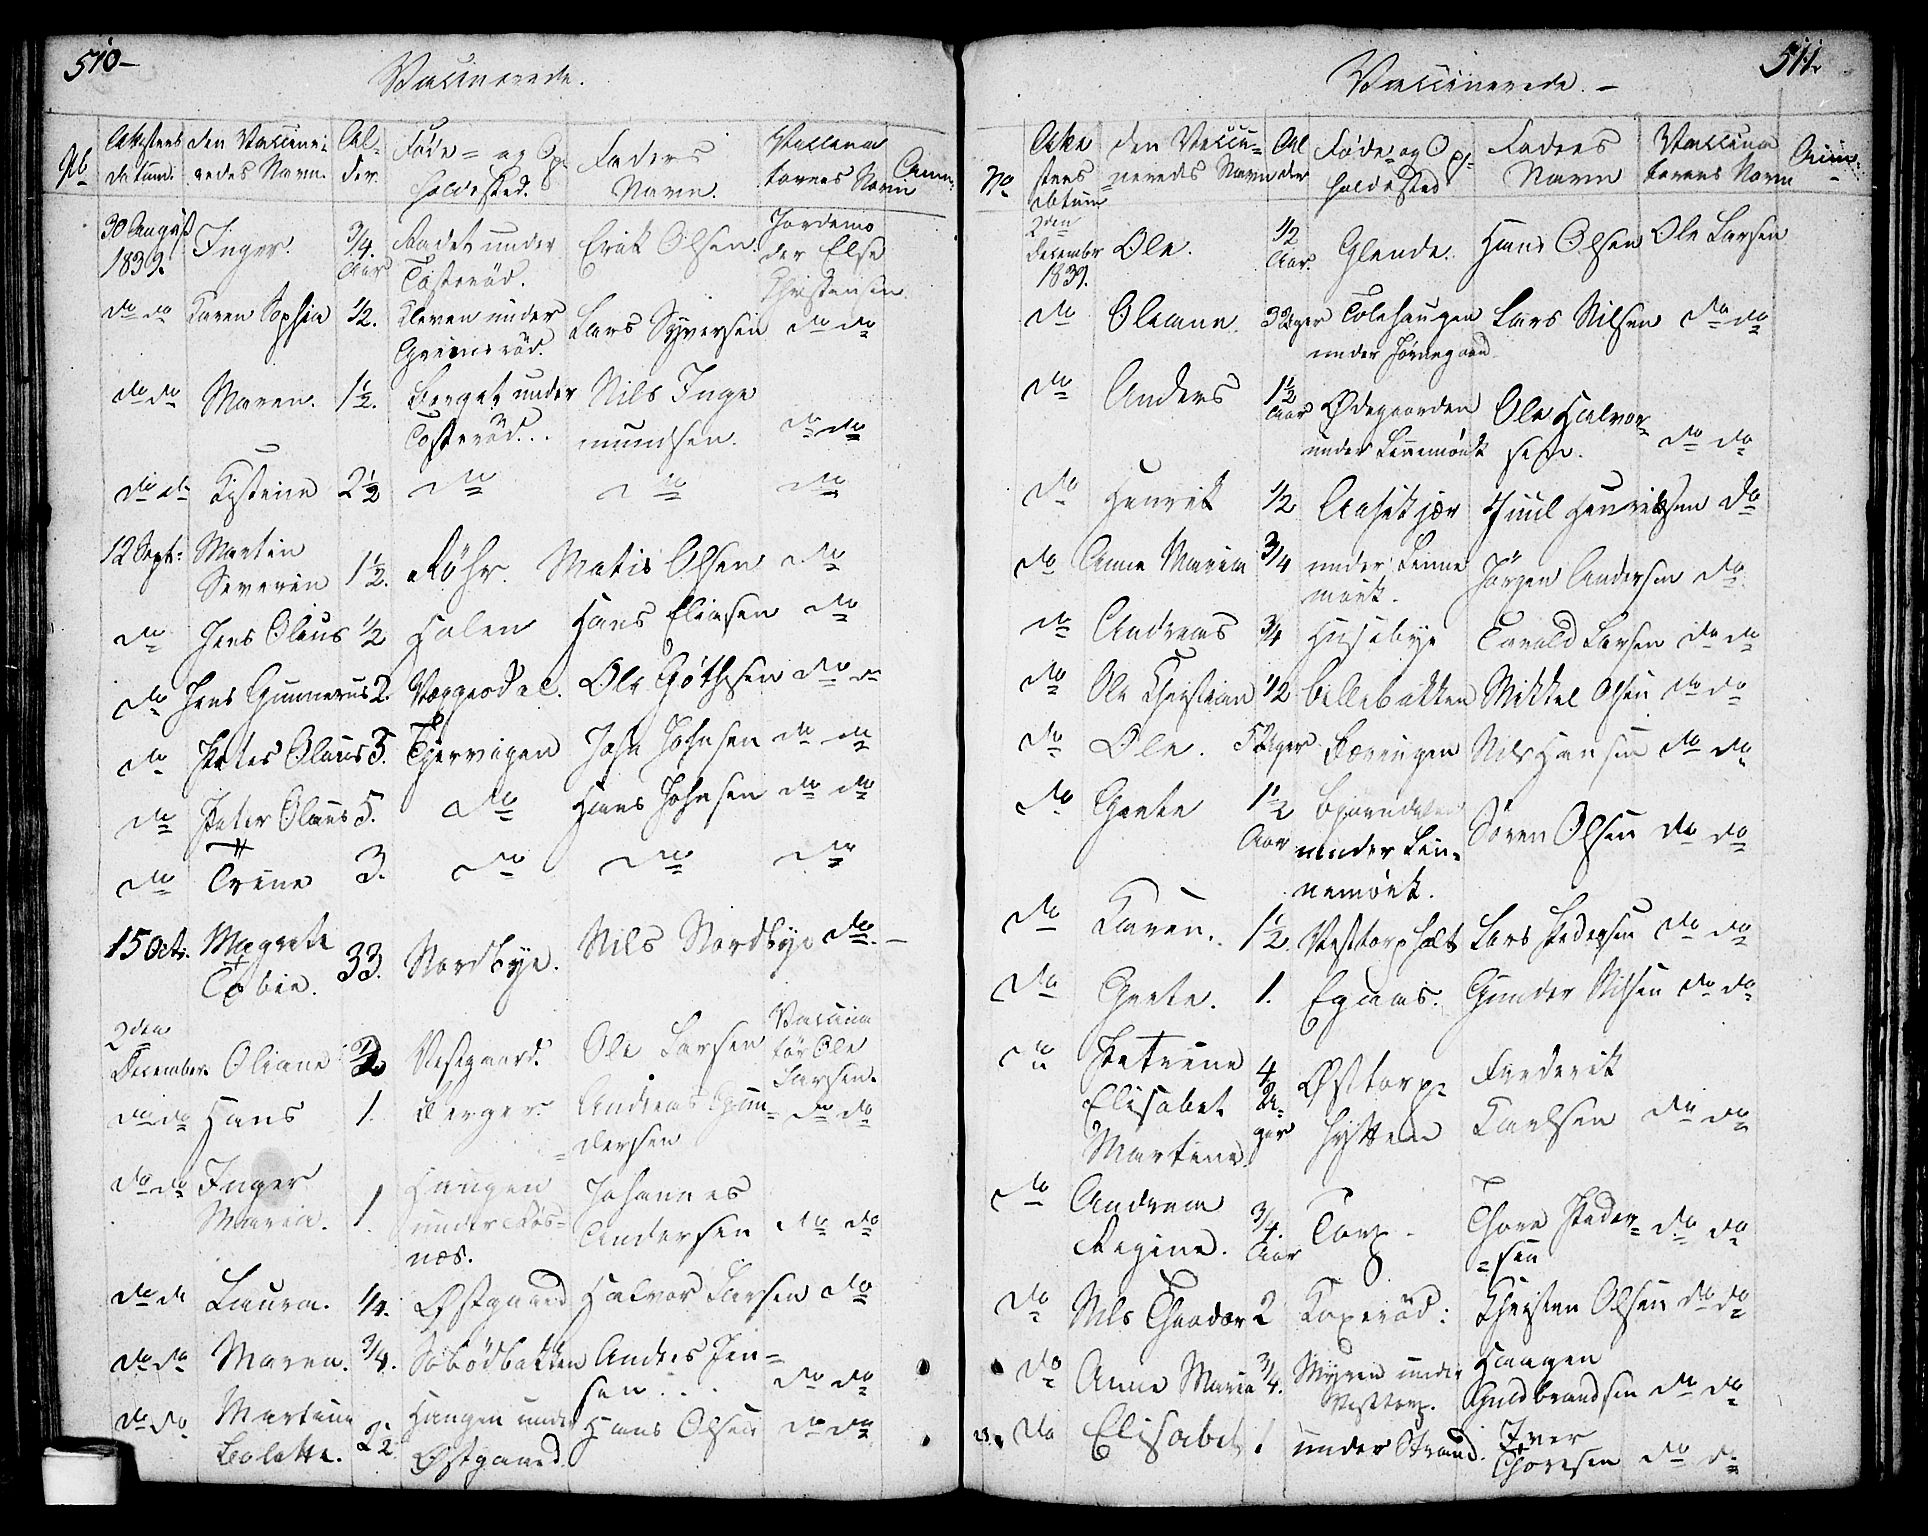 510-
Vaccinerede.
No Attestens Datum. den Vaccine- redes Navn. Al- der. Føde- og Op- holdested. Faders Navn. Vaccina torens Navn Anm:
30 August 1839. Inger. 3/4 Aar Rødet under Tosterød. Erik Olsen. Jordemo der Else Christensen.
do do Karen Sophia 1/2. Kleven under Grimsrød. Lars Syversen do do
do do Maren. 1 1/2. Berget under Tosterød. Nils Inge mundsen. do do
do do Kistine 2 1/2 do do do
12 Sept: Martin Severin 1 1/2. Röhr. Matis Olsen do
do Jens Olaus 1/2 Holen Hans Eliasen do
do Jens Gunnerus 2 Væggerdal. Ole Gøthesen do do
do Peter Olaus 3. Tjervigen Joh Johnsen do do
do Peter Olaus 5. do Hans Johnsen do do
do Trine 3. do do do
15 Oct: Magrete Tobie. 33. Nordbye. Nils Nordbye do.
2den December. Oliane 2 Vestgaard. Ole Larsen Vaccina tör Ole Larsen.
do do Hans 1. Berger. Andreas Gun- dersen do do
do do Inger Maria. 1 Haugen under Røs- næs. Johannes Andersen do do
do do Laura. 1/4. Østgaard Halvor Larsen do
do do Maren. 3/4. Sobödbakken Andres Jen- sen do do
do do Martine Bolette. 2 1/2 Haugen under Østgaard. Hans Olsen do do
511.
Vaccinerede.-
No Atte stens datum den Vacci- neredes Navn Al der Føde- og Op- holdested Faders Navn Vaccina torens Navn Anm:
2den Decembr 1839. Ole. 1/2 Aar. Glende. Hans Olsen Ole Larsen
do Oleane. 3 Uger Tolehaugen under Hovnegaard Lars Nilsen do do
do Anders 1 1/2 Aar Ødegaarden under Linnemörk Ole Halvor- sen. do do
do Henrik 1/2 Aasekjær Juul Henriksen do
do Anne Maria 3/4 under Linne mörk. Jörgen Andersen do
do Andreas 3/4 Husebye Tarald Larsen do do
do Ole Christian 1/2 Lillebakken Mikkel Olsen do do
do Ole. 5 Uger Bævingen Nils Hansen do do
do Grete 1 1/2 Aar under Lin- nemörk. Sören Olsen do do
do Karen. 1 1/2. Vesttorpholt Lars Pedersen do do
do Grete. 1. Egenæs. Gunder Nilsen do do
do Petrine Elisabet Martine 4 U- ger Østtorp- Hytten Frederik Karlsen do do
do Andrea Regine. 3/4. Aar Torp. Thore Peder- sen do do
do Nils Theodor 2 Kaxeröd: Christen Olsen do do
do Anne Maria 3/4. Myren under Vesttorp. Haagen Guldbrandsen do do
do Elisabet 1 under Strand. Iver Thoresen do do